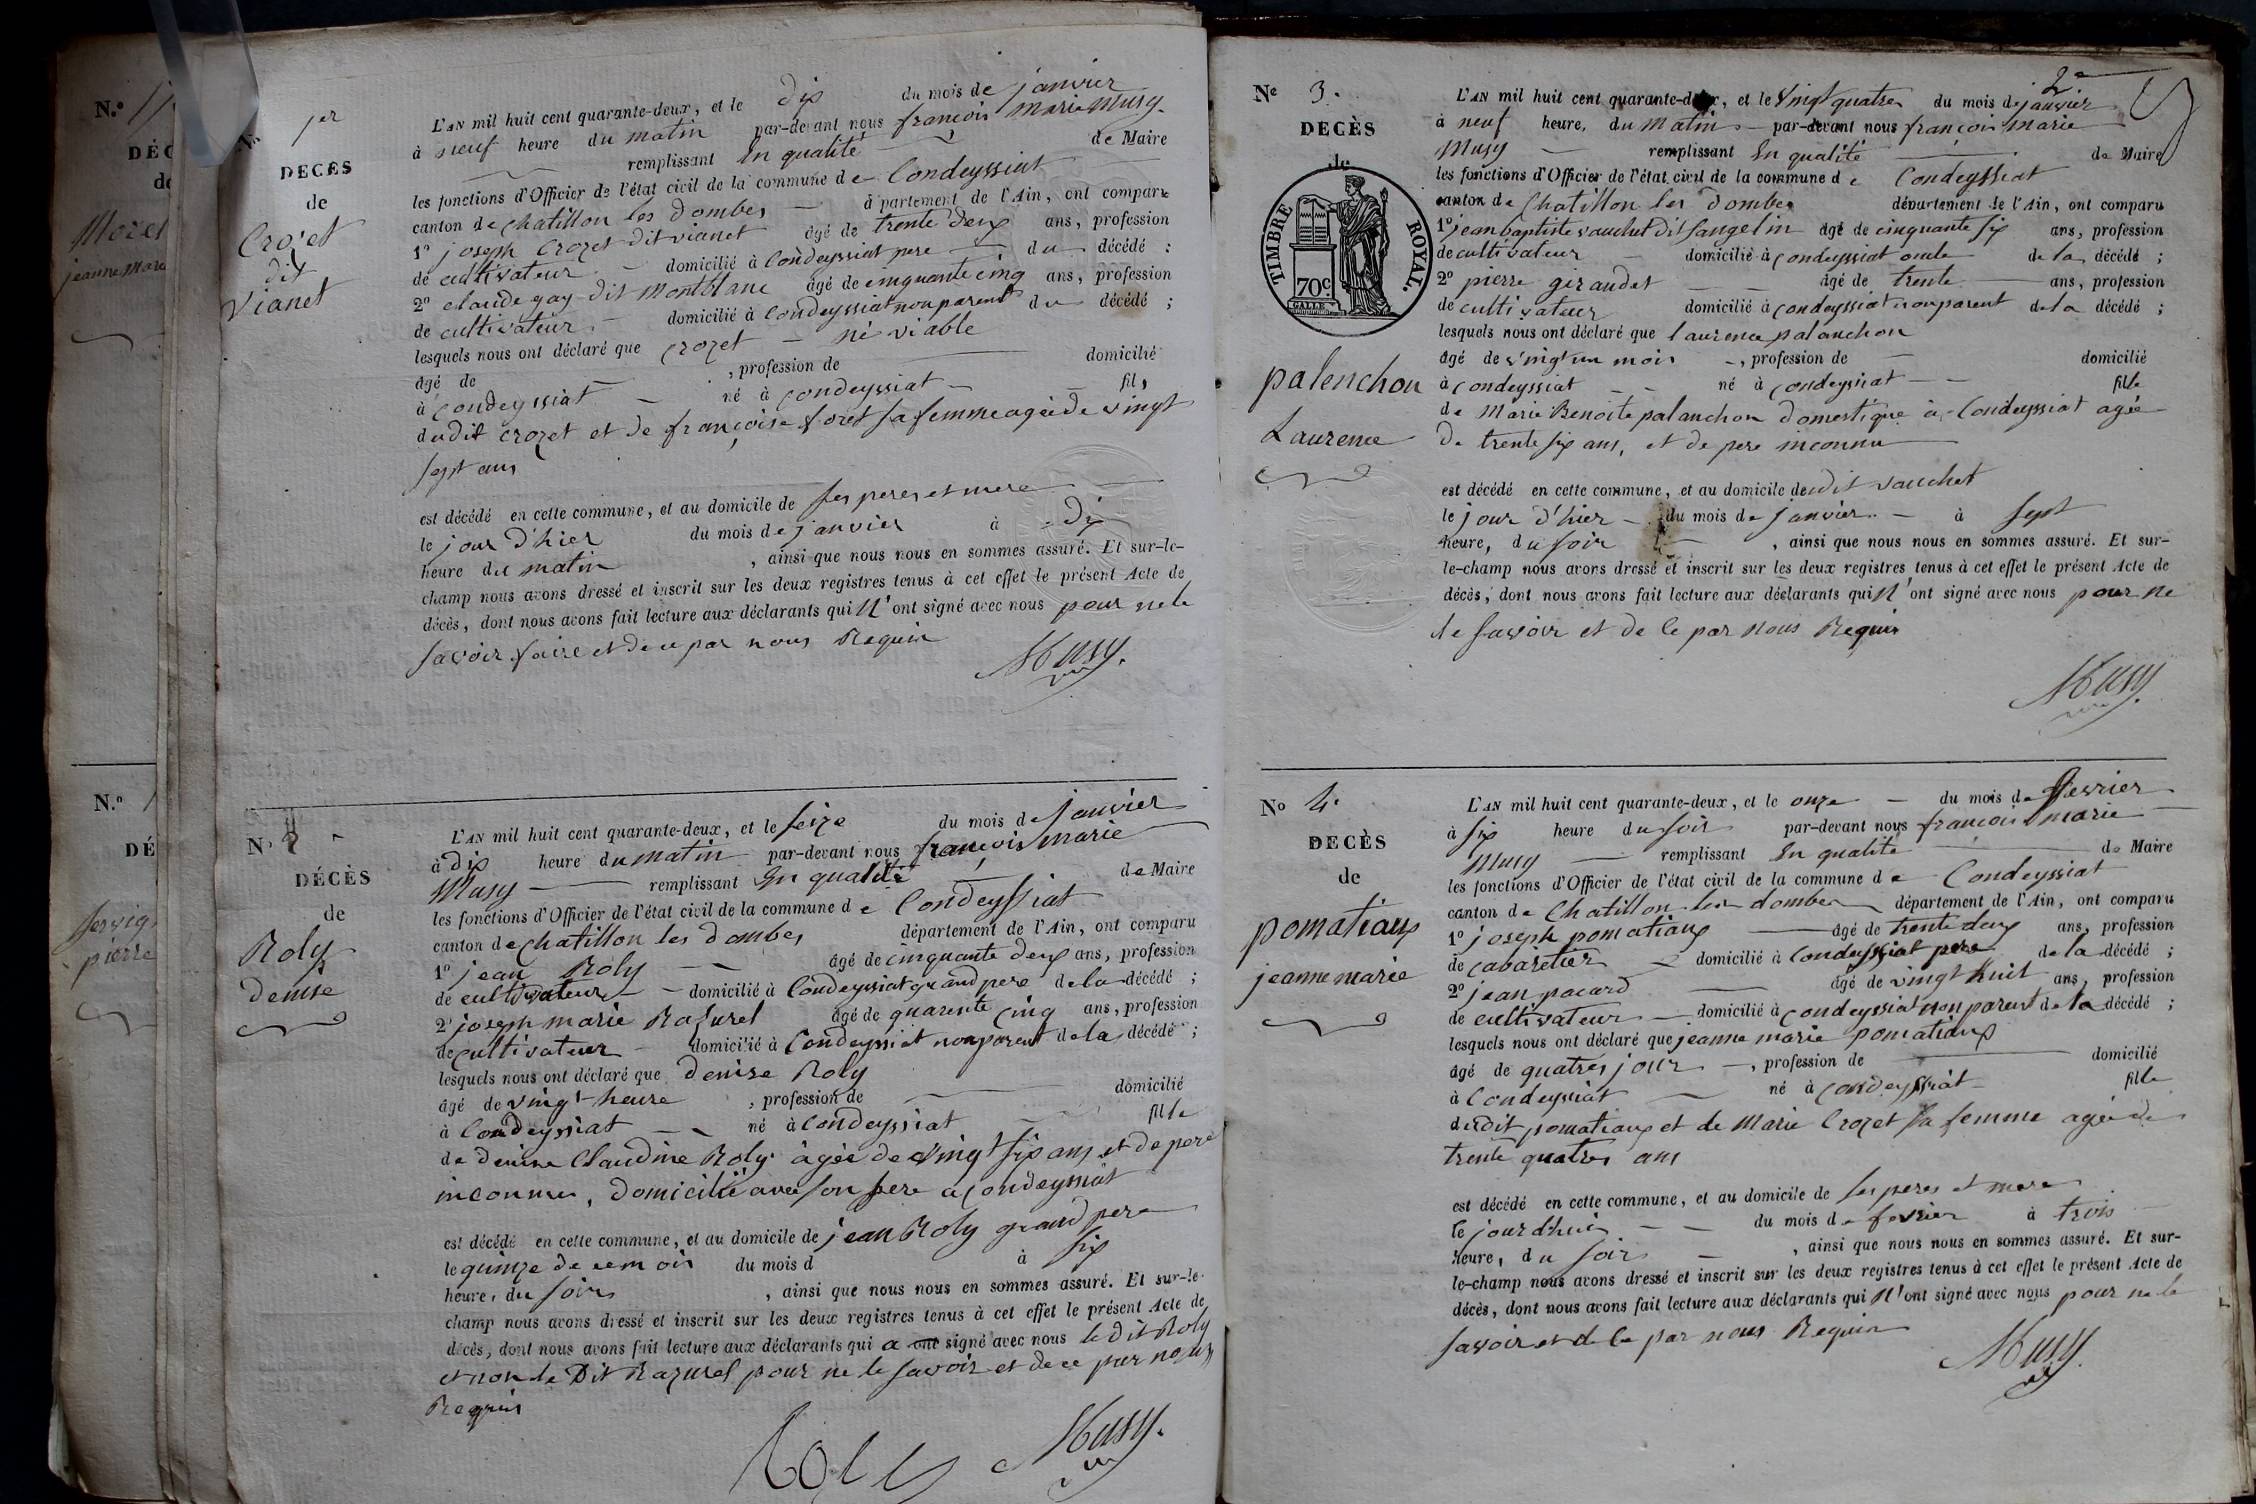 N.º
DÉC
de
Morel
jeanne Marie
N.º
DÉ
pierre
1er
DECÈS
de
Crozet
dit
Vianet
L'AN mil huit cent quarante-deux, et le dix du mois de janvier
à neuf heure du matin par-devant nous françois Marie Musy
remplissant En qualité de Maire
les fonctions d'Officier de l'état civil de la commune de Condeyssiat
canton de chatillon les dombes département de l'Ain, ont comparu
1º joseph Crozet dit vianet âgé de trente deux ans, profession
de cultivateur domicilié à Condeyssiat pere du décédé ;
2º claude gay dit Montblanc âgé de cinquante cinq ans, profession
de cultivateur domicilié à Condeyssiat non parent du décédé ;
lesquels nous ont déclaré que crozet né viable
âgé de , profession de domicilié
à Condeyssiat né à Condeyssiat fils
dudit crozet et de françoise foret sa femme agée de vingt
sept ans
est décédé en cette commune, et au domicile de ses peres et mere
le jour d'hier du mois de janvier à dix
heure du matin , ainsi que nous nous en sommes assuré. Et sur-le-
champ nous avons dressé et inscrit sur les deux registres tenus à cet effet le présent Acte de
décès, dont nous avons fait lecture aux déclarants qui N'ont signé avec nous pour ne le
savoir faire et de ce par nous Requis
Musy
N. 2
DÉCÈS
de
Roly
denise
L'AN mil huit cent quarante-deux, et le seize du mois de janvier
à dix heure du matin par-devant nous françois marie
Musy remplissant En qualité de Maire
les fonctions d'Officier de l'état civil de la commune de Condeyssiat
canton de chatillon les dombes département de l'Ain, ont comparu
1º jean Roly âgé de cinquante deux ans, profession
de cultivateur domicilié à Condeyssiat grand pere de la décédé ;
2º joseph marie Razurel âgé de quarente cinq ans, profession
de cultivateur domicilié à Condeyssiat non parent de la décédé ;
lesquels nous ont déclaré que denise Roly
âgé de vingt heure , profession de domicilié
à Condeyssiat né à Condeyssiat fille
de denise Claudine Roly agée de vingt six ans et de pere
inconnu, domicilié avec son pere a Condeyssiat
est décédé en cette commune, et au domicile de jean Roly grand pere
le quinze de ce mois du mois d à six
heure, du soir , ainsi que nous nous en sommes assuré. Et sur-le-
champ nous avons dressé et inscrit sur les deux registres tenus à cet effet le présent Acte de
décès, dont nous avons fait lecture aux déclarants qui a ont signé avec nous le dit Roly
et non le Dit Razurel pour ne le savoir et de ce par nous
Requis
Roly Musy
2e
Nº 3.
DECÈS
de
TIMBRE ROYAL.
70c
palenchon
Laurence
L'AN mil huit cent quarante-deux, et le vingt quatre du mois de janvier
à neuf heure, du matin par-devant nous françois marie
Musy remplissant En qualité de Maire
les fonctions d'Officier de l'état civil de la commune de Condeyssiat
canton de Chatillon les dombes département de l'Ain, ont comparu
1º jean baptiste vauchet dit sangelin âgé de cinquante six ans, profession
de cultivateur domicilié à condeyssiat oncle de la décédé ;
2º pierre giraudet âgé de trente ans, profession
de cultivateur domicilié à condeyssiat non parent de la décédé ;
lesquels nous ont déclaré que laurence palanchon
âgé de vingt un mois , profession de domicilié
à Condeyssiat né à Condeyssiat fille
de Marie Benoite palanchon domestique à Condeyssiat agée
de trente six ans, et de pere inconnu
est décédé en cette commune, et au domicile dudit vauchet
le jour d'hier du mois de janvier à sept
heure, du soir , ainsi que nous nous en sommes assuré. Et sur-
le-champ nous avons dressé et inscrit sur les deux registres tenus à cet effet le présent Acte de
décès, dont nous avons fait lecture aux déclarants qui N'ont signé avec nous pour ne
le savoir et de ce par nous Requis
Musy
Nº 4.
DÉCÈS
de
pomatiaux
jeanne marie
L'AN mil huit cent quarante-deux, et le onze du mois de fevrier
à six heure du soir par-devant nous françois marie
Musy remplissant En qualité de Maire
les fonctions d'Officier de l'état civil de la commune de Condeyssiat
canton de Chatillon les dombes département de l'Ain, ont comparu
1º joseph pomatiaux âgé de trente deux ans, profession
de cabaretier domicilié à Condeyssiat pere de la décédé ;
2º jean pacard âgé de vingt huit ans, profession
de cultivateur domicilié à condeyssiat non parent de la décédé ;
lesquels nous ont déclaré que jeanne marie pomatiaux
âgé de quatres jours , profession de domicilié
à Condeyssiat né à Condeyssiat fille
dudit pomatiaux et de Marie Crozet sa femme agée de
trente quatres ans
est décédé en cette commune, et au domicile de ses peres et mere
le jour d'hui du mois de fevrier à trois
heure, du soir , ainsi que nous nous en sommes assuré. Et sur-
le-champ nous avons dressé et inscrit sur les deux registres tenus à cet effet le présent Acte de
décès, dont nous avons fait lecture aux déclarants qui N'ont signé avec nous pour ne le
savoir et de ce par nous Requis
Musy